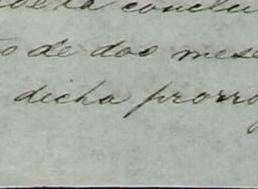 conclu
de dos mese
dicha prorro